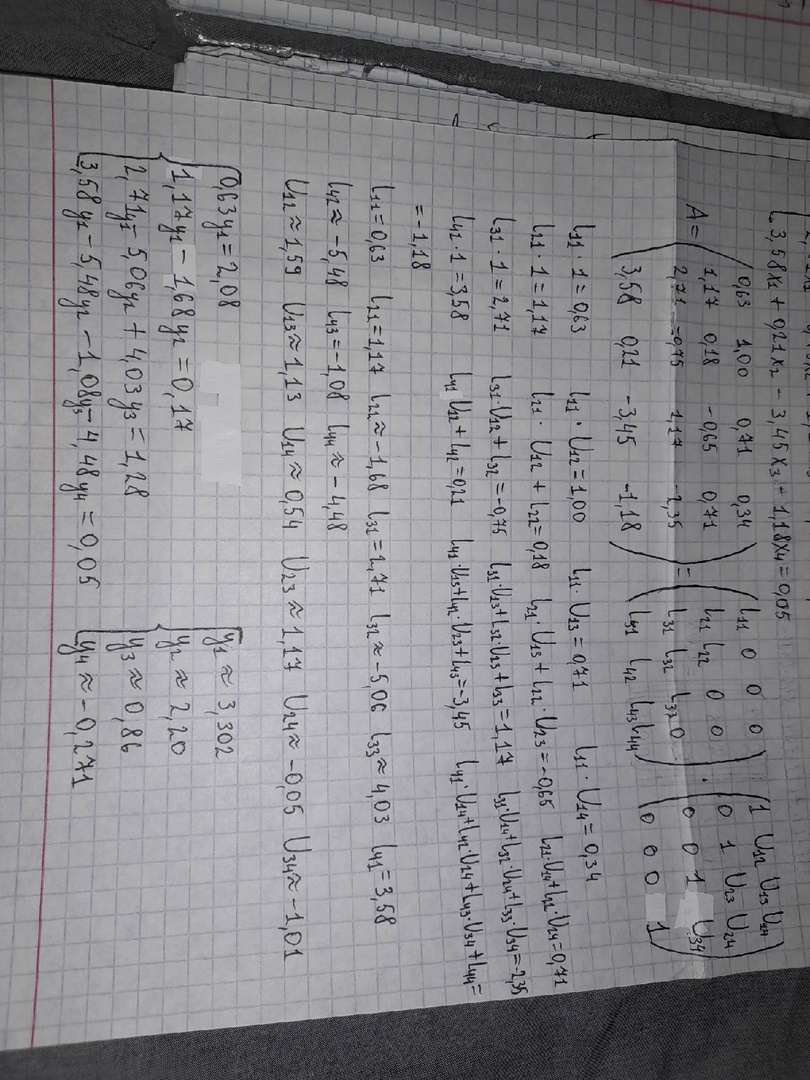 3,58x₁ + 0,21x₂ - 3,45x₃ + 1,18x₄ = 0,05
A = ( 0,63 1,00 0,71 0,34 ) = ( l₁₁ 0 0 0 ) · ( 1 U₁₂ U₁₃ U₁₄ )
1,17 0,18 -0,65 0,71 l₂₁ l₂₂ 0 0 0 1 U₂₃ U₂₄
2,71 -0,75 1,17 -2,35 l₃₁ l₃₂ l₃₃ 0 0 0 1 U₃₄
3,58 0,21 -3,45 -1,18 l₄₁ l₄₂ l₄₃ l₄₄ 0 0 0 1
l₁₁ · 1 = 0,63 l₁₁ · U₁₂ = 1,00 l₁₁ · U₁₃ = 0,71 l₁₁ · U₁₄ = 0,34
l₂₁ · 1 = 1,17 l₂₁ · U₁₂ + l₂₂ = 0,18 l₂₁ · U₁₃ + l₂₂ · U₂₃ = -0,65 l₂₁·U₁₄ + l₂₂·U₂₄ = 0,71
l₃₁ · 1 = 2,71 l₃₁·U₁₂ + l₃₂ = -0,75 l₃₁·U₁₃ + l₃₂·U₂₃ + l₃₃ = 1,17 l₃₁·U₁₄ + l₃₂·U₂₄ + l₃₃·U₃₄ = -2,35
l₄₁ · 1 = 3,58 l₄₁ U₁₂ + l₄₂ = 0,21 l₄₁·U₁₃ + l₄₂·U₂₃ + l₄₃ = -3,45 l₄₁·U₁₄ + l₄₂·U₂₄ + l₄₃·U₃₄ + l₄₄ =
= -1,18
l₁₁ = 0,63 l₂₁ = 1,17 l₂₂ ≈ -1,68 l₃₁ = 2,71 l₃₂ ≈ -5,06 l₃₃ ≈ 4,03 l₄₁ = 3,58
l₄₂ ≈ -5,48 l₄₃ = -1,08 l₄₄ ≈ -4,48
U₁₂ ≈ 1,59 U₁₃ ≈ 1,13 U₁₄ ≈ 0,54 U₂₃ ≈ 1,17 U₂₄ ≈ -0,05 U₃₄ ≈ -1,01
0,63y₁ = 2,08 y₁ ≈ 3,302
1,17y₁ - 1,68y₂ = 0,17 y₂ ≈ 2,20
2,71y₁ - 5,06y₂ + 4,03y₃ = 1,28 y₃ ≈ 0,86
3,58y₁ - 5,48y₂ - 1,08y₃ - 4,48y₄ = 0,05 y₄ ≈ -0,271